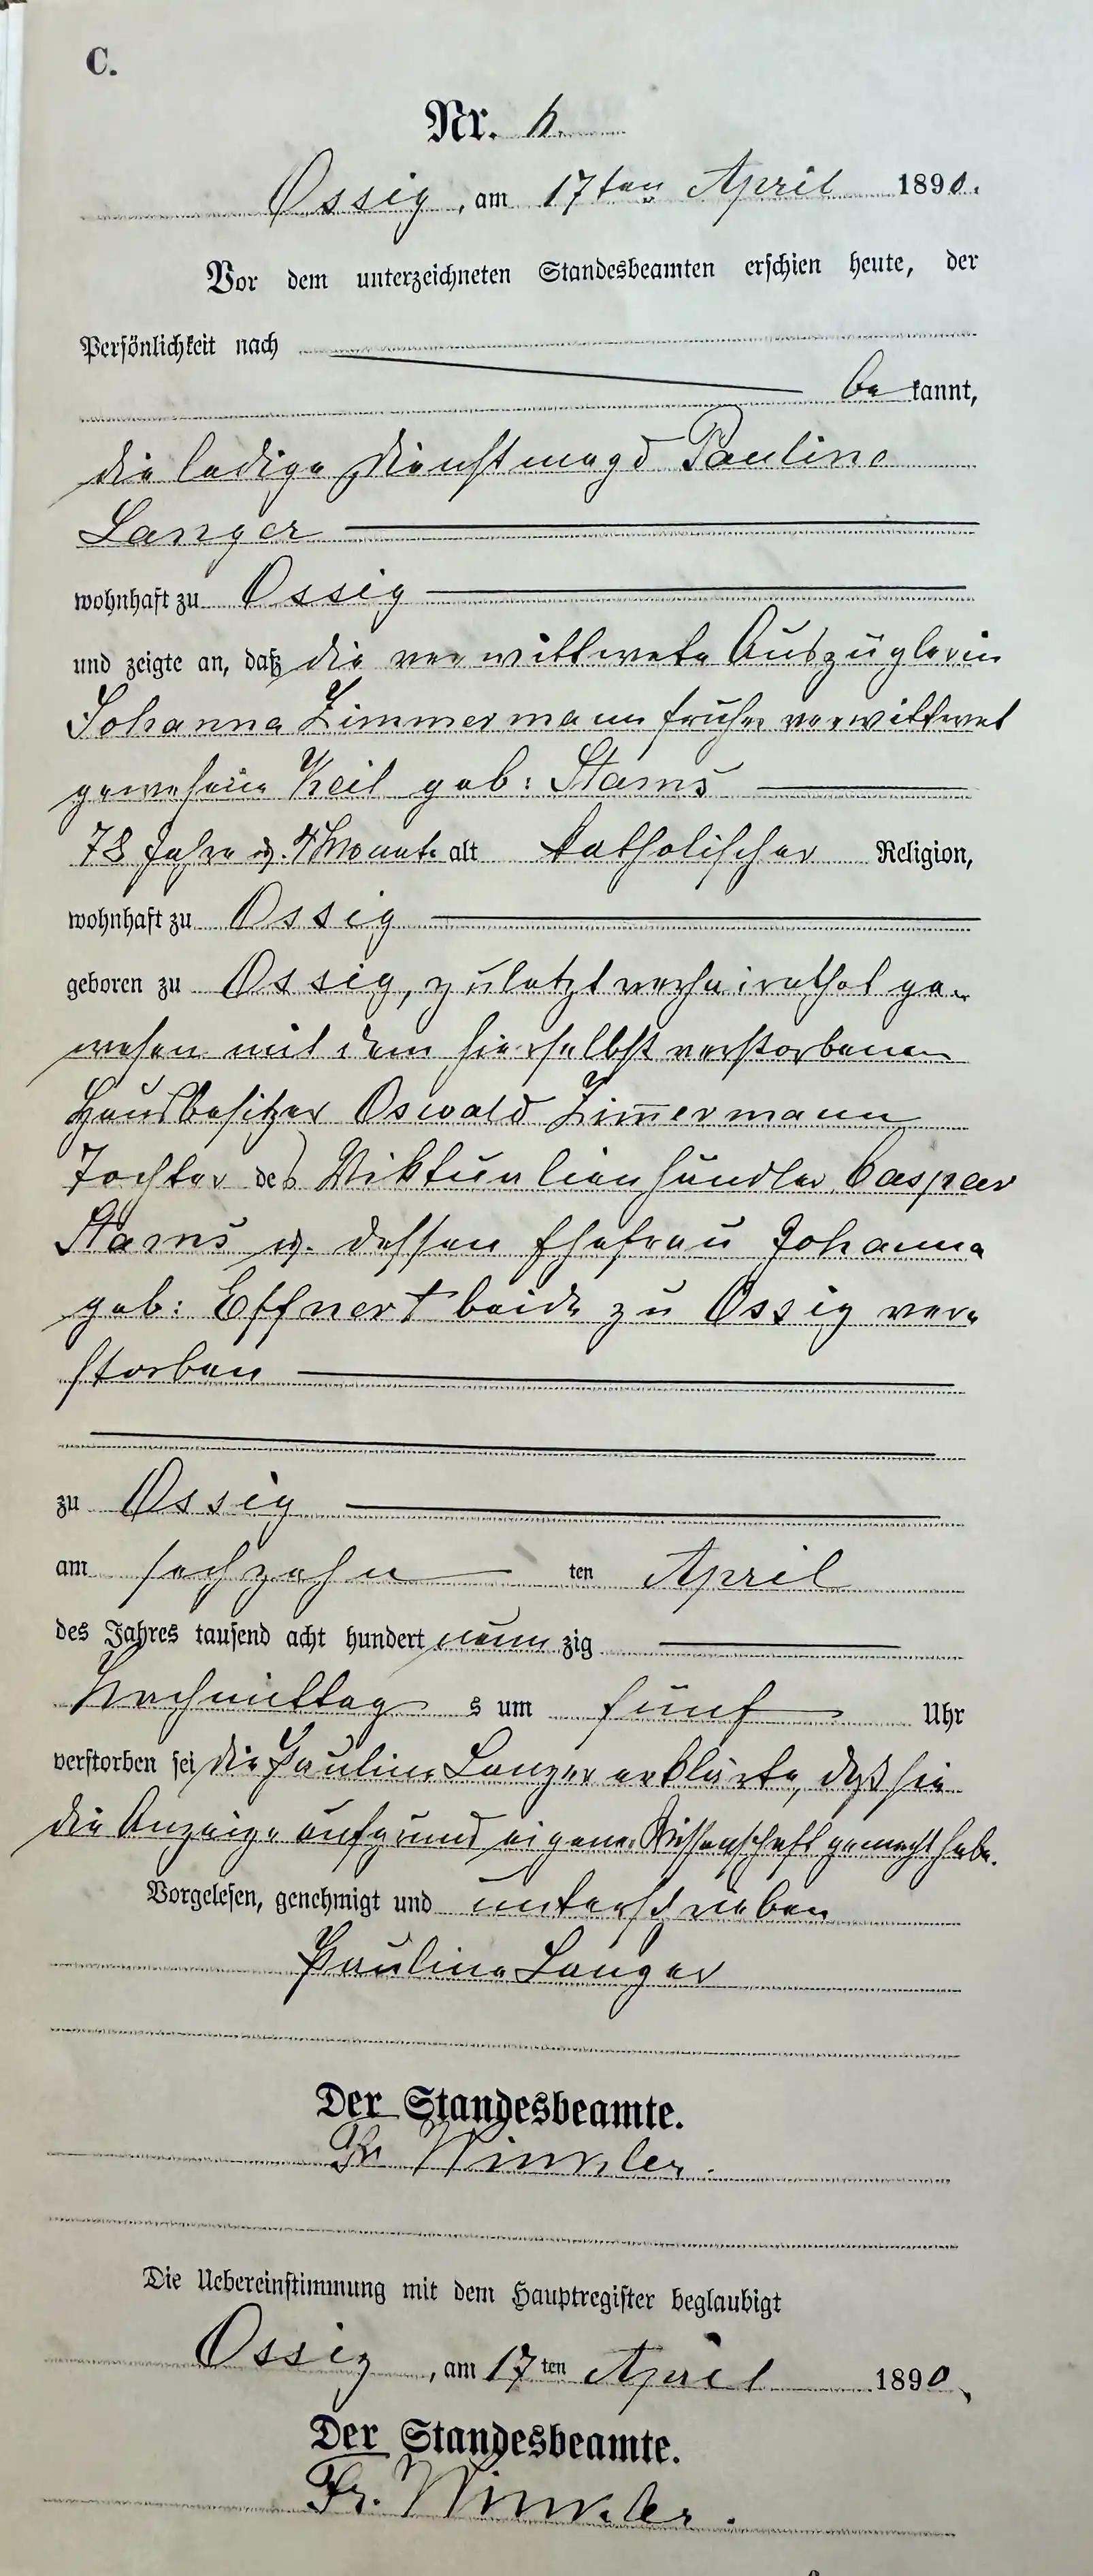 C.
Nr. 6.
Ossig, am 17ten April 1890.
Vor dem unterzeichneten Standesbeamten erschien heute, der
Persönlichkeit nach
be kannt,
die ledige Dienstmagd Pauline
Langer
wohnhaft zu Ossig
und zeigte an, daß die verwittwete Auszüglerin
Johanna Zimmermann früher verwittwet
gewesene Keil geb: Stams
78 Jahre u. 4 Monate alt katholischer Religion,
wohnhaft zu Ossig
geboren zu Ossig, zuletzt verheirathet ge-
wesen mit dem hierselbst verstorbenen
Hausbesitzer Oswald Zim̅ermann
Tochter des Viktualienhändler Caspar
Stams u. dessen Ehefrau Johanna
geb: Effnert beide zu Ossig ver-
storben
zu Ossig
am sechzehn ten April
des Jahres tausend acht hundert neun zig
Nachmittag s um fünf Uhr
verstorben sei die Pauline Langer erklärte, daß sie
die Anzeige aufgrund eigener Wissenschaft gemacht habe.
Vorgelesen, genehmigt und unterschrieben
Pauline Langer
Der Standesbeamte.
Fr. Winkler.
Die Uebereinstimmung mit dem Hauptregister beglaubigt
Ossig, am 17 ten April 1890.
Der Standesbeamte.
Fr. Winkler.